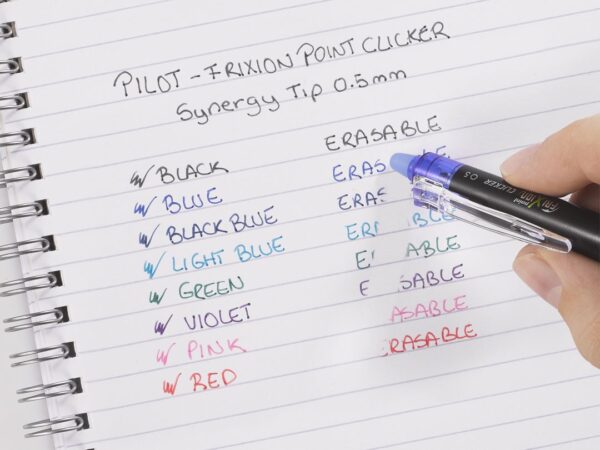 PILOT - FRIXION POINT CLICKER
Synergy Tip 0.5mm
ERASABLE
BLACK ERAS BLE
BLUE ERAS
BLACK BLUE ERI BLE
LIGHT BLUE E ABLE
GREEN E SABLE
VIOLET ASABLE
PINK ERASABLE
RED
FRIXION point CLICKER 0.5